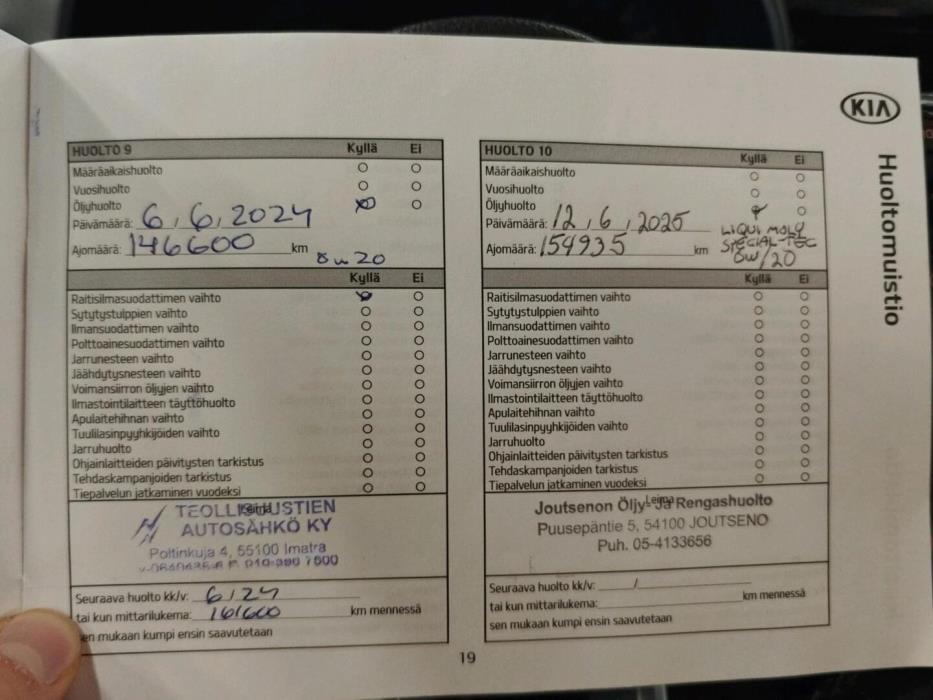 KIA
Huoltomuistio
HUOLTO 9 Kyllä Ei
Määräaikaishuolto
Vuosihuolto
Öljyhuolto
Päivämäärä: 6, 6, 2024
Ajomäärä: 146600 km
0w20
Kyllä Ei
Raitisilmasuodattimen vaihto
Sytytystulppien vaihto
Ilmansuodattimen vaihto
Polttoainesuodattimen vaihto
Jarrunesteen vaihto
Jäähdytysnesteen vaihto
Voimansiirron öljyjen vaihto
Ilmastointilaitteen täyttöhuolto
Apulaitehihnan vaihto
Tuulilasinpyyhkijöiden vaihto
Jarruhuolto
Ohjainlaitteiden päivitysten tarkistus
Tehdaskampanjoiden tarkistus
Tiepalvelun jatkaminen vuodeksi
Leima
TEOLLISUUSTIEN
AUTOSÄHKÖ KY
Poltinkuja 4, 55100 Imatra
Seuraava huolto kk/v: 6/24
tai kun mittarilukema: 161600 km mennessä
sen mukaan kumpi ensin saavutetaan
HUOLTO 10 Kyllä Ei
Määräaikaishuolto
Vuosihuolto
Öljyhuolto
Päivämäärä: 12, 6, 2025
Ajomäärä: 154935 km
LIQUI MOLY
SPECIAL-TEC
0W/20
Kyllä Ei
Raitisilmasuodattimen vaihto
Sytytystulppien vaihto
Ilmansuodattimen vaihto
Polttoainesuodattimen vaihto
Jarrunesteen vaihto
Jäähdytysnesteen vaihto
Voimansiirron öljyjen vaihto
Ilmastointilaitteen täyttöhuolto
Apulaitehihnan vaihto
Tuulilasinpyyhkijöiden vaihto
Jarruhuolto
Ohjainlaitteiden päivitysten tarkistus
Tehdaskampanjoiden tarkistus
Tiepalvelun jatkaminen vuodeksi
Leima
Joutsenon Öljy- Ja Rengashuolto
Puusepäntie 5, 54100 JOUTSENO
Puh. 05-4133656
Seuraava huolto kk/v: /
tai kun mittarilukema: km mennessä
sen mukaan kumpi ensin saavutetaan
19